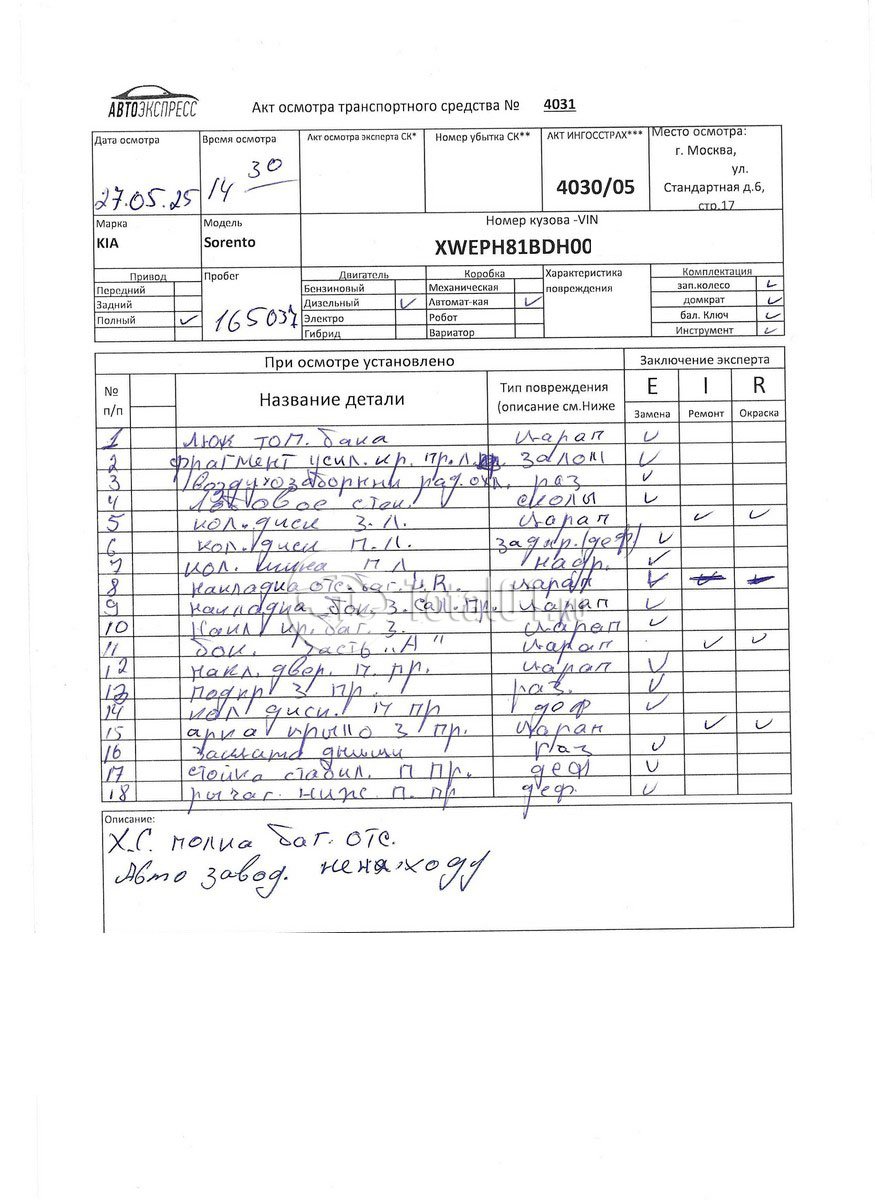 АВТОЭКСПРЕСС
Акт осмотра транспортного средства № 4031
Дата осмотра
27.05.25
Время осмотра
14 30
Акт осмотра эксперта СК*
Номер убытка СК**
АКТ ИНГОССТРАХ***
4030/05
Место осмотра:
г. Москва,
ул.
Стандартная д.6,
стр.17
Марка
KIA
Модель
Sorento
Номер кузова -VIN
XWEPH81BDH00
Привод
Передний
Задний
Полный ✓
Пробег
165037
Двигатель
Бензиновый
Дизельный ✓
Электро
Гибрид
Коробка
Механическая
Автомат-кая ✓
Робот
Вариатор
Характеристика
повреждения
Комплектация
зап.колесо ✓
домкрат ✓
бал. Ключ ✓
Инструмент ✓
При осмотре установлено
Заключение эксперта
№
п/п
Название детали
Тип повреждения
(описание см.Ниже
E I R
Замена Ремонт Окраска
1 люк топ. бака царап ✓
2 фрагмент усил. кр. пр. л. залом ✓
3 воздухозаборник рад. охл. раз ✓
4 лобовое стек. сколы ✓
5 кол. диск З. Л. царап ✓ ✓
6 кол. диск П. Л. задир. (деф) ✓
7 кол. шина П Л надр. ✓
8 накладка отс. баг. R. царап ✓
9 накладка бок. З. сал. пр. царап ✓
10 Накл кр. баг. З. царап ✓
11 бок. часть "А" царап ✓ ✓
12 накл. двер. П. пр. царап ✓
13 подкр З пр. раз. ✓
14 кол диск. П пр деф ✓
15 арка крыло З пр. царап ✓ ✓
16 защита днища раз ✓
17 стойка стабил. П Пр. деф ✓
18 рычаг. ниж. П. пр деф. ✓
Описание:
Х.С. полка баг. отс.
Авто завод. не на ходу